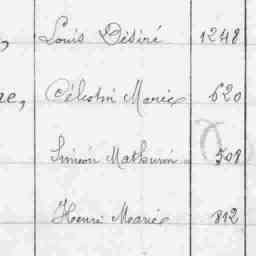 , Louis Désiré 1248
re, Célestin Marie 620
Siméon Mathurin 508
Henri Marie 812